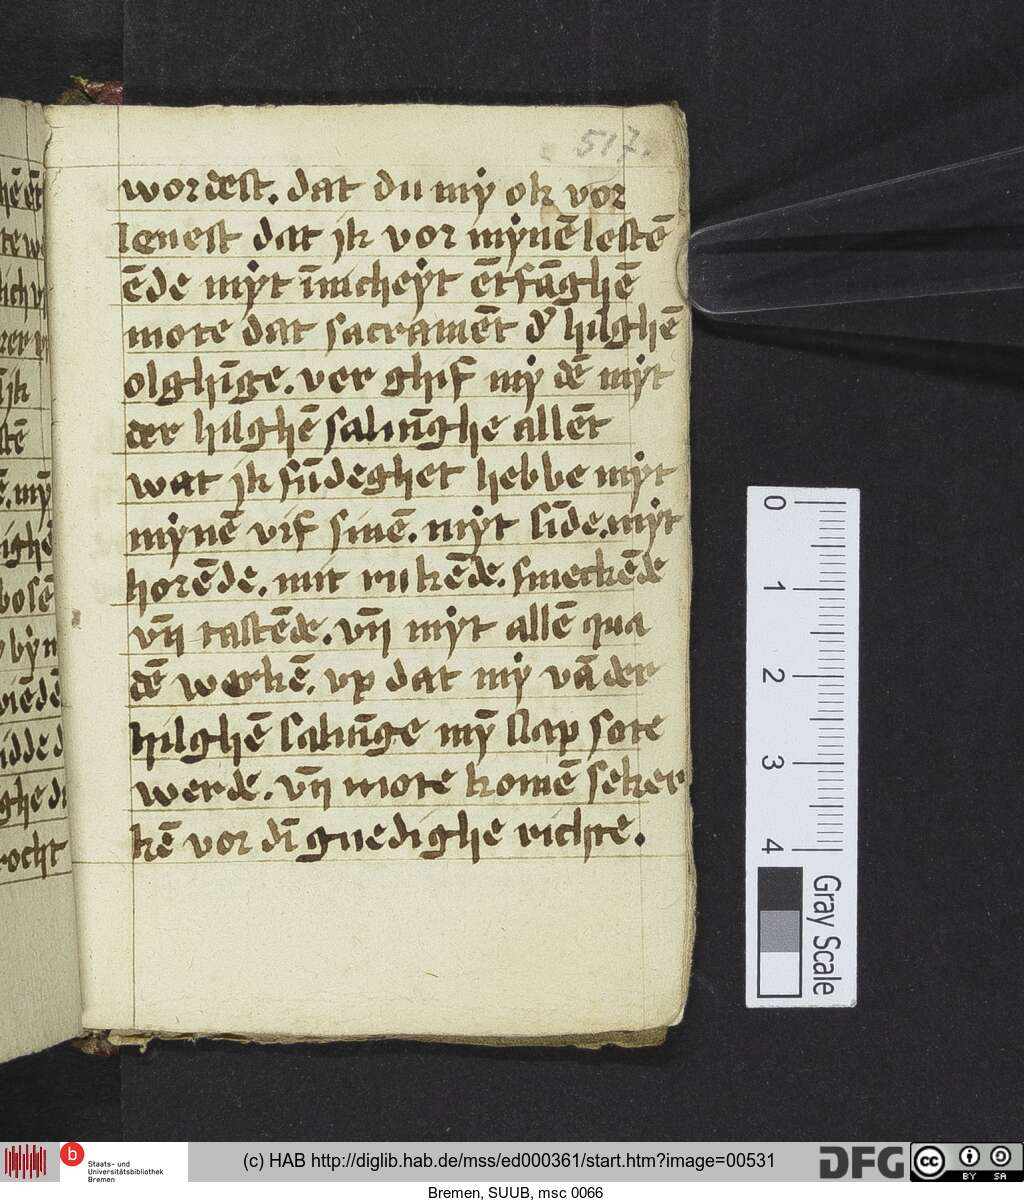 517.
wordest. dat du mẏ ok vor
lenest dat jk vor mẏnē lestē
ēde mẏt īnicheẏt ētfāghē
mote dat sacramēt dʼ hilghē
olghīge. ver ghif mẏ dē mẏt
der hilghē saluīghe allēt
wat jk sūdeghet hebbe mẏt
mẏnē vif sinē. mẏt sīde. mẏt
horēde. mit rukēde. smeckēde
vn̄ tastēde. vn̄ mẏt allē qua
dē werkē. vp dat mẏ vā der
hilghē saluīge mȳ slap sote
werde. vn̄ mote komē seker
kē vor dī gnedighe richte.
0
1
2
3
4
Gray Scale
b
Staats- und
Universitätsbibliothek
Bremen
(c) HAB http://diglib.hab.de/mss/ed000361/start.htm?image=00531
DFG
cc
BY SA
Bremen, SUUB, msc 0066